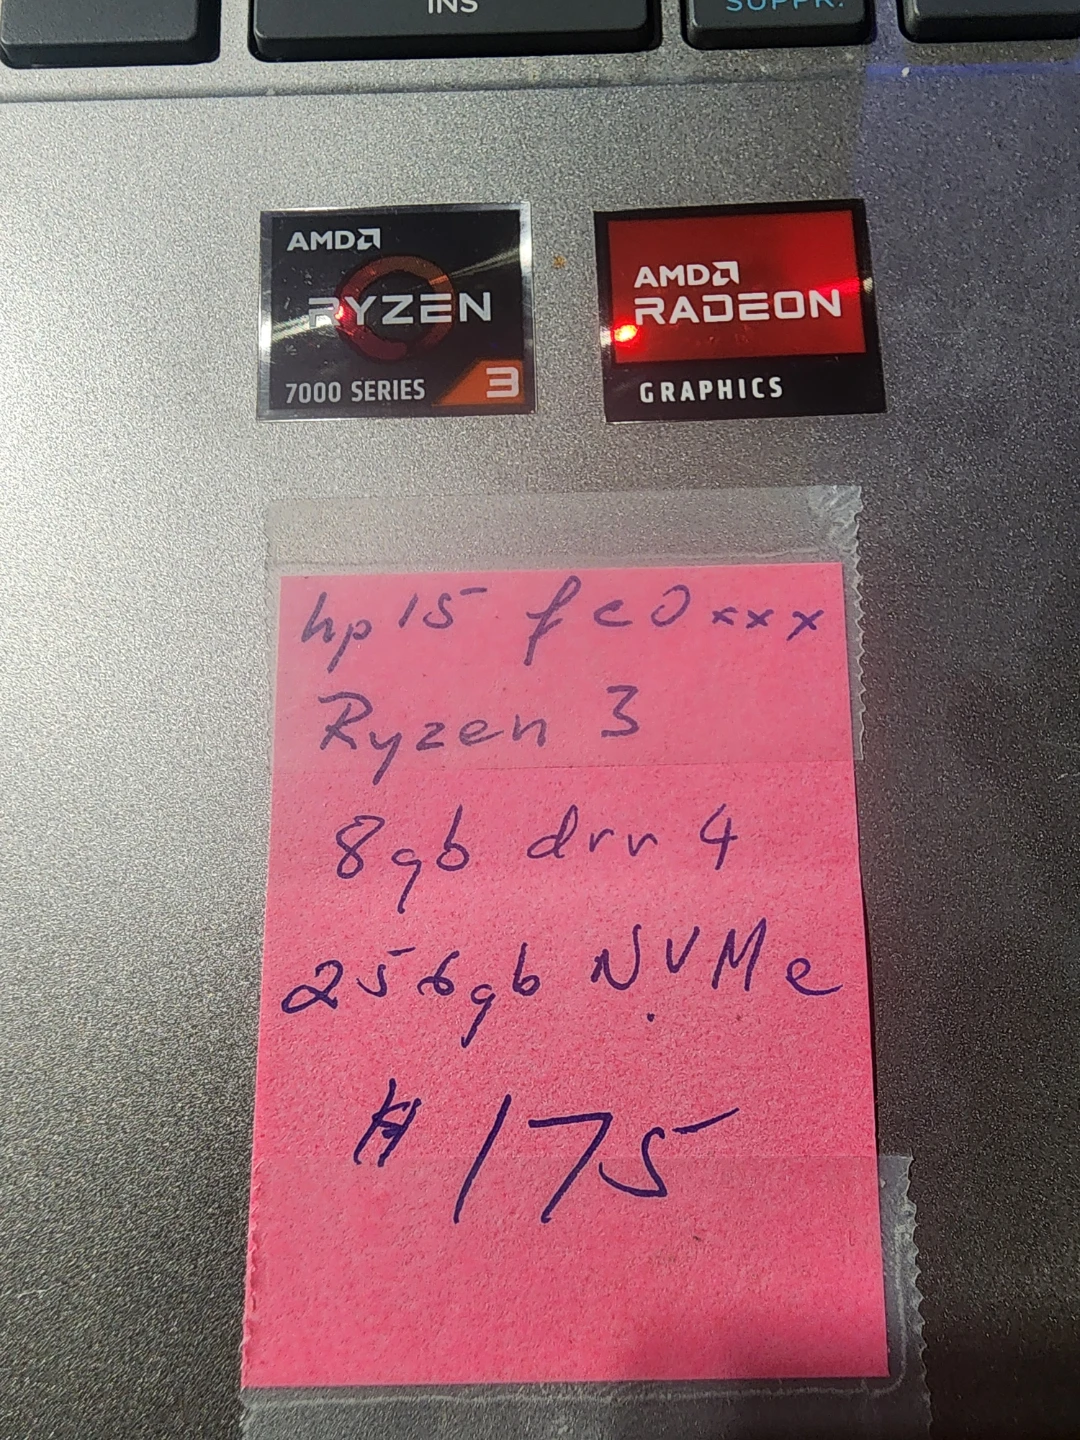 INS
SUPPR.
AMD
RYZEN
7000 SERIES 3
AMD
RADEON
GRAPHICS
hp 15 fc0xxx
Ryzen 3
8gb drr 4
256gb NVMe
# 175